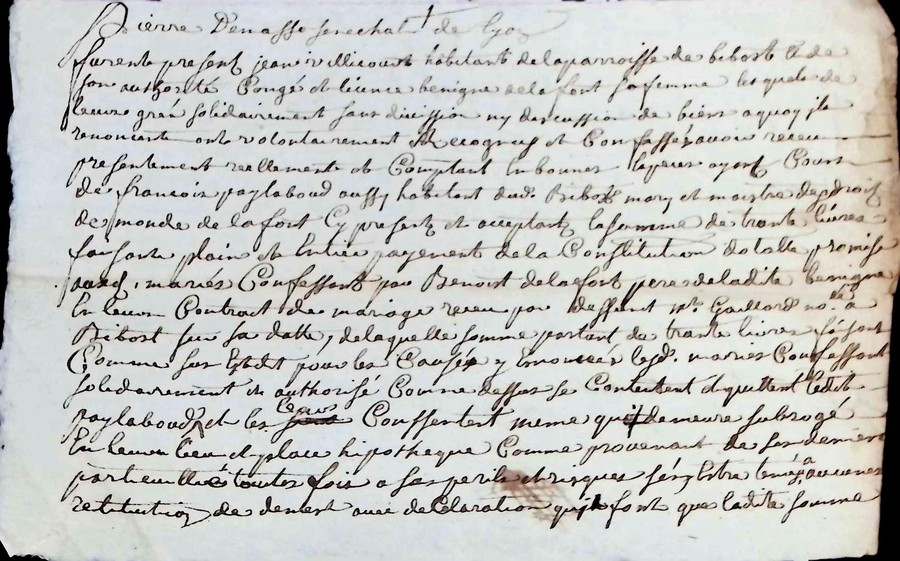 Pierre Denasse senechal de Lyon
furent presents jean villicourt habitant de la parroisse de bibost et de
son authorité Congé et licence benigne de la font sa femme lesquels de
leurs grés solidairement sans division ny discussion de biens a quoy ils
renoncent ont volontairement Recognus et Confessés avoir receu
presentement reellement et Comptant En bonnes especes ayant Cours
de francois paylaboud aussy habitant dud. Bibost mary et maistre des droits
de monde de la font Cy present et acceptant la somme de trante livres
faisante plain et Entier payement de la Constitution dotalle promise
auxd. mariés Confessants par Benoist de la font pere de ladite benigne
En leur Contract de mariage receu par deffunt Mr. Gaillard no.re a
Bibost sur sa datte, de laquelle somme partant de trante livres faisant
Comme sus Est dit pour les Causes y Enoncées lesd. mariés Confessant
solidairement et authorisé Comme dessus se Contentent et quittent ledit
paylaboud et les siens Conssentent meme quil demeure subrogé
En leur lieu et place hipotheque Comme provenant de ses deniers
particuilliés toutes fois a ses perils et risques sans Estre tenus a aucunes
restitution de deniers avec declaration quils font que ladite somme